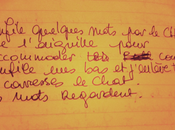 enfile quelques mots par le Ch
de l'aiguille pour
accommoder
enfile mes bas et j'enlève
caresses le Chat
s mots Regardent...